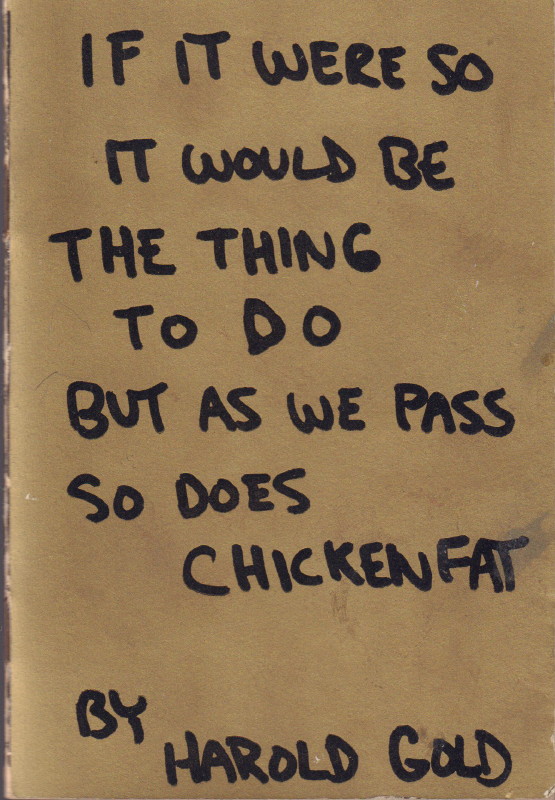 IF IT WERE SO
IT WOULD BE
THE THING
TO DO
BUT AS WE PASS
SO DOES
CHICKENFAT
BY
HAROLD GOLD